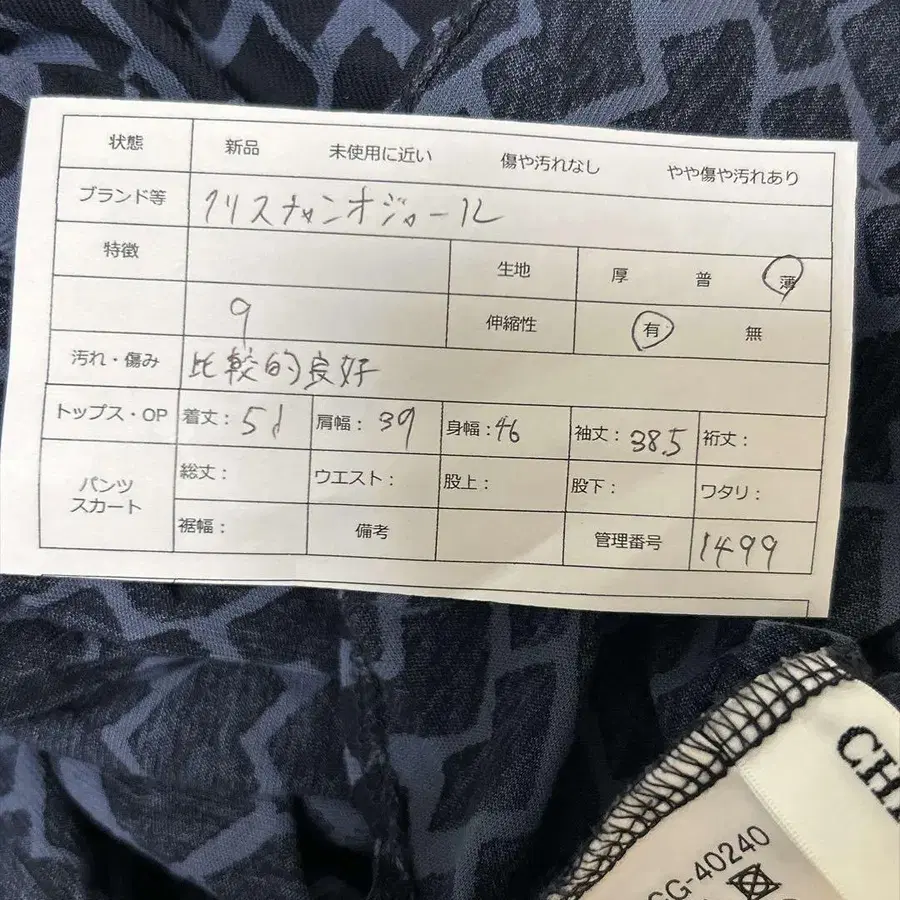 状態 新品 未使用に近い 傷や汚れなし やや傷や汚れあり
ブランド等 クリスチャンオジョール
特徴 生地 厚 普 薄
9 伸縮性 有 無
汚れ・傷み 比較的良好
トップス・OP 着丈： 51 肩幅： 39 身幅：46 袖丈： 38.5 裄丈：
パンツ スカート 総丈： ウエスト： 股上： 股下： ワタリ：
裾幅： 備考 管理番号 1499
CH
CG-40240